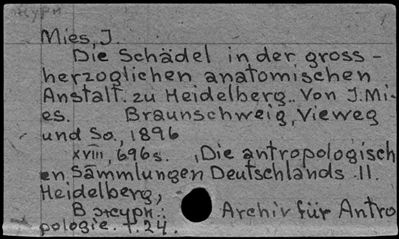 журн.
Mies, J.
Die Schädel in der gross-
herzoglichen anatomischen
Anstalt. zu Heidelberg.. Von J. Mi-
es. Braunschweig, Vieweg
und So, 1896
XVIII, 696s. „Die antropologisch
en Sammlungen Deutschlands. II.
Heidelberg,
В журн.: Archiv für Antro
pologie. т. 24.